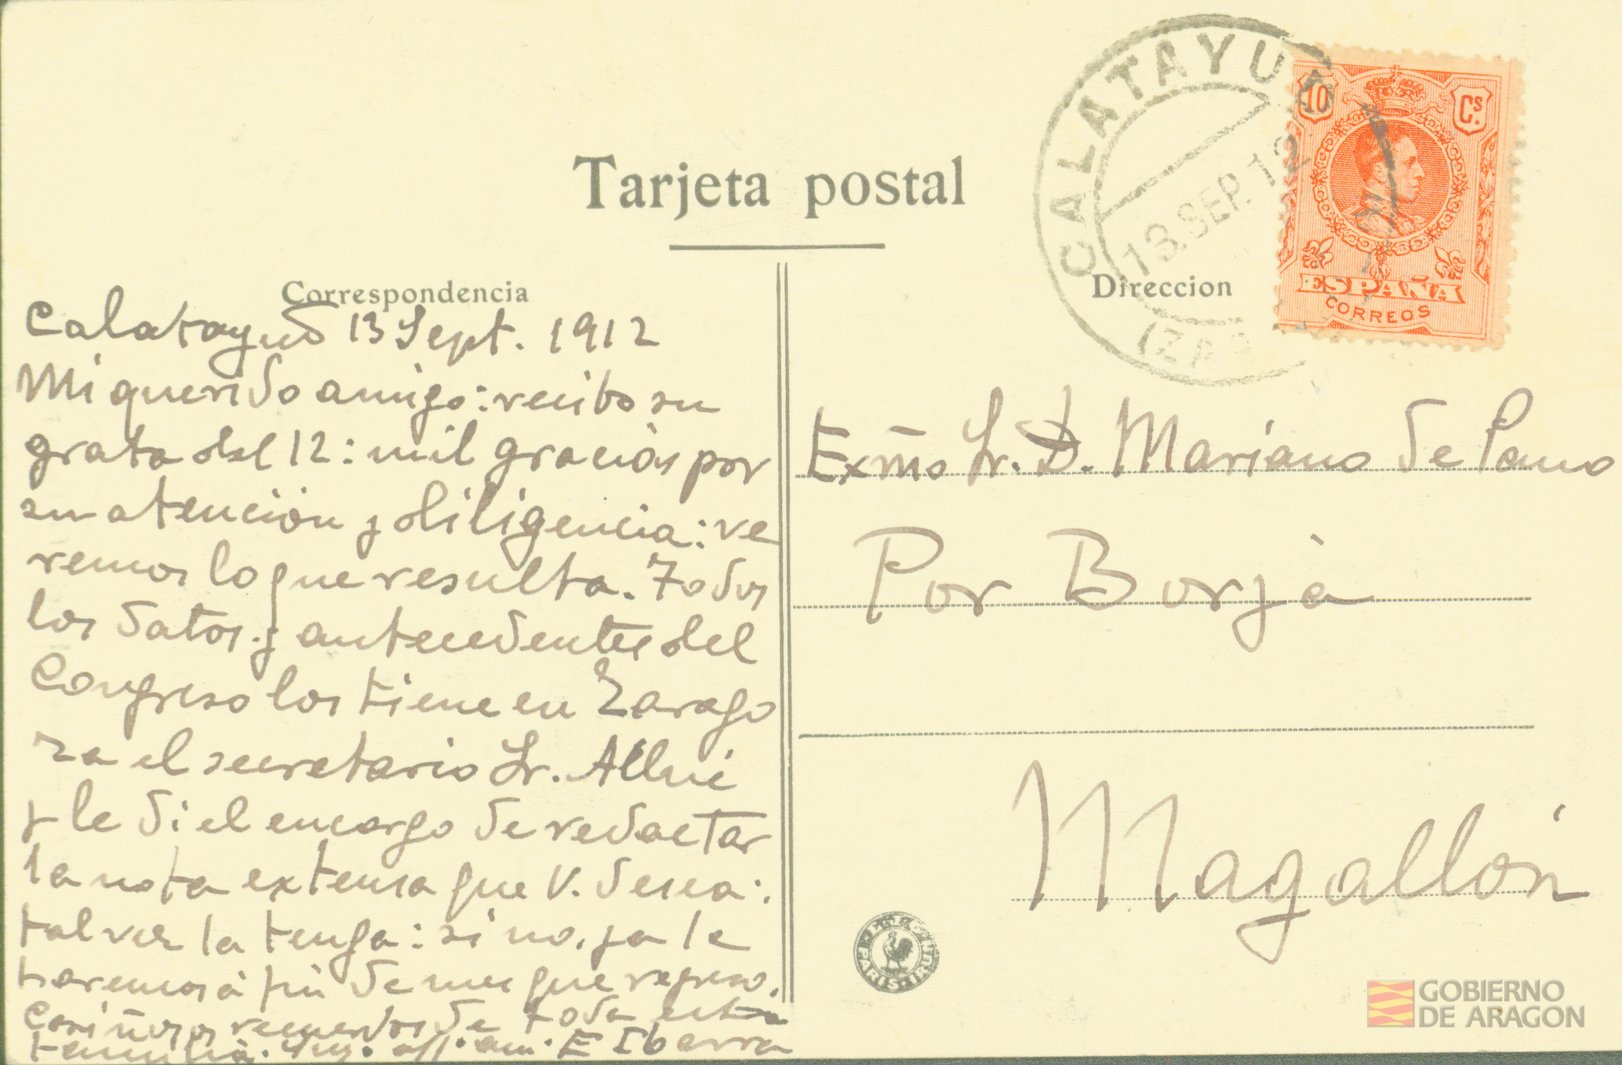 Tarjeta postal
Correspondencia
Calatayud 13 Sept. 1912
Mi querido amigo: recibo su
grata del 12: mil gracias por
su atención y diligencia: ve
remos lo que resulta. Todos
los datos y antecedentes del
Congreso los tiene en Zarago
za el secretario Sr. Allué
y le di el encargo de redactar
la nota extensa que V. desea:
tal vez la tenga: si no, ya le
haremos á fin de mes que regreso.
Cariñosos recuerdos de toda esta
familia. Suy. aff. am. E Ibarra
CALATAYUD
13. SEP. 12
(ZAR
Direccion
10
Cs.
ESPAÑA
CORREOS
Exmo Sr. D. Mariano de Pano
Por Borja
Magallón
PARIS-IRUN
GOBIERNO
DE ARAGON